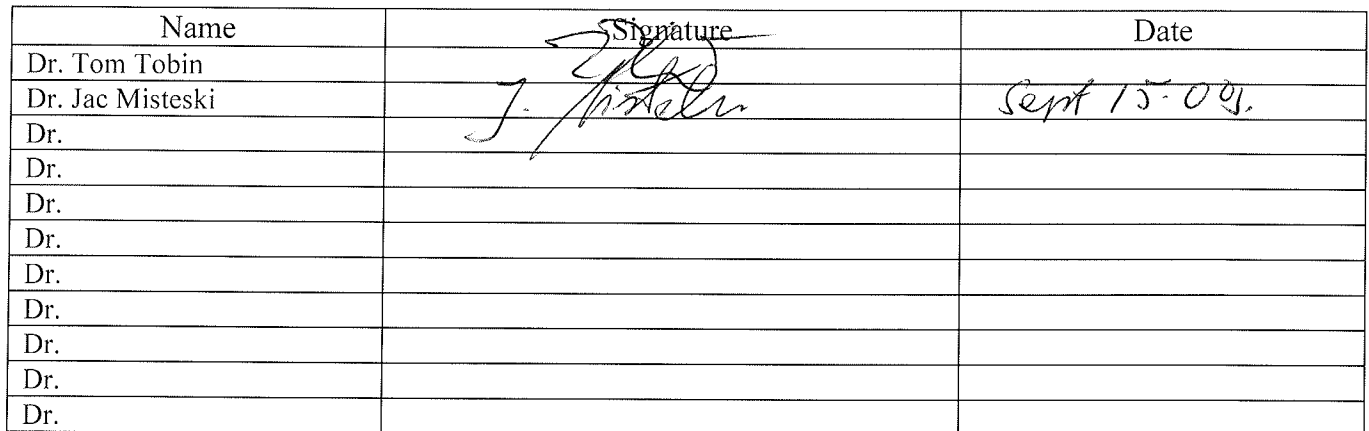 Name Signature Date
Dr. Tom Tobin
Dr. Jac Misteski J. Sept 15-09.
Dr.
Dr.
Dr.
Dr.
Dr.
Dr.
Dr.
Dr.
Dr.